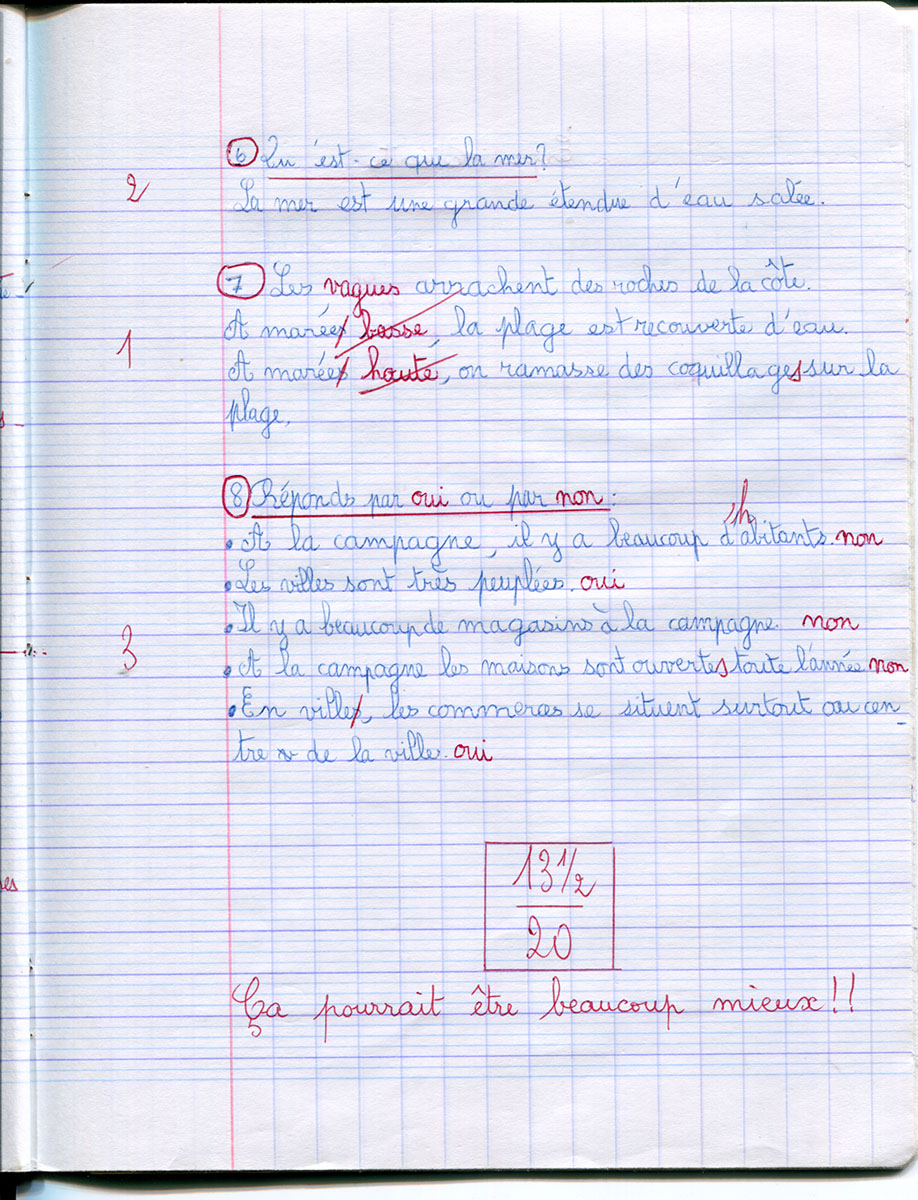 6 Qu'est-ce que la mer?
2
La mer est une grande étendue d'eau salée.
7 Les vagues arrachent des roches de la côte.
A marées basse, la plage est recouverte d'eau.
1
A marées haute, on ramasse des coquillages sur la
plage.
8 Réponds par oui ou par non :
h
• A la campagne, il y a beaucoup d'abitants. non
• Les villes sont très peuplées. oui
• Il y a beaucoup de magasins à la campagne. non
3
• A la campagne les maisons sont ouvertes toute l'année non
• En villes, les commerces se situent surtout au cen-
tre de la ville. oui
13 1/2
20
Ça pourrait être beaucoup mieux!!